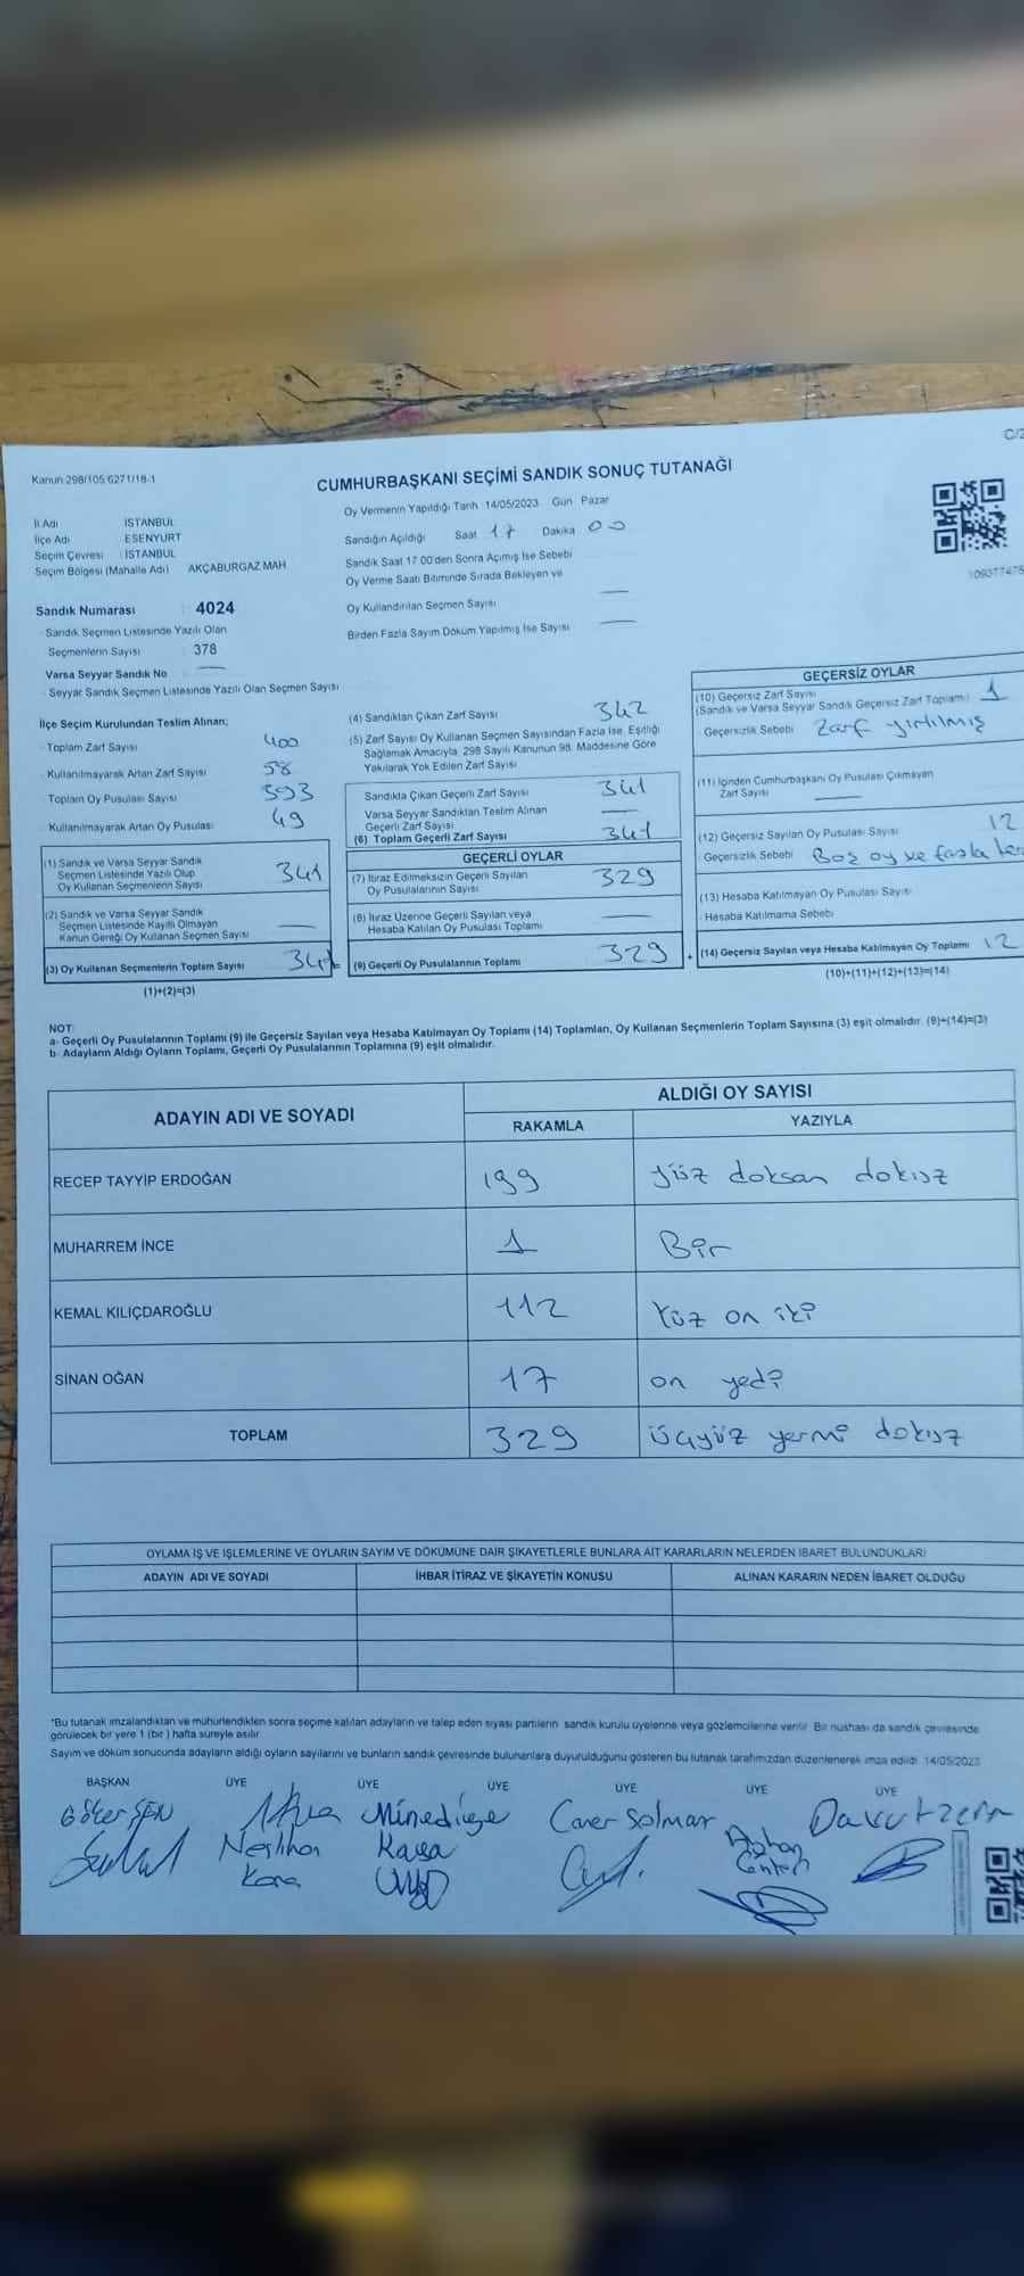 Kanun 298/105 6271/18-1
CUMHURBAŞKANI SEÇİMİ SANDIK SONUÇ TUTANAĞI
Oy Vermenin Yapıldığı Tarih 14/05/2023 Gün Pazar
İl Adı İSTANBUL
İlçe Adı ESENYURT
Seçim Çevresi : İSTANBUL
Seçim Bölgesi (Mahalle Adı) AKÇABURGAZ MAH
Sandığın Açıldığı Saat 17 Dakika 00
Sandık Saat 17 00'den Sonra Açılmış İse Sebebi
Oy Verme Saati Bitiminde Sırada Bekleyen ve
Oy Kullandırılan Seçmen Sayısı —
Birden Fazla Sayım Döküm Yapılmış İse Sayısı —
Sandık Numarası : 4024
Sandık Seçmen Listesinde Yazılı Olan
Seçmenlerin Sayısı : 378
Varsa Seyyar Sandık No —
Seyyar Sandık Seçmen Listesinde Yazılı Olan Seçmen Sayısı
İlçe Seçim Kurulundan Teslim Alınan;
Toplam Zarf Sayısı 400
Kullanılmayarak Artan Zarf Sayısı 58
Toplam Oy Pusulası Sayısı 393
Kullanılmayarak Artan Oy Pusulası 49
(1) Sandık ve Varsa Seyyar Sandık
Seçmen Listesinde Yazılı Olup
Oy Kullanan Seçmenlerin Sayısı 341
(2) Sandık ve Varsa Seyyar Sandık
Seçmen Listesinde Kayıtlı Olmayan
Kanun Gereği Oy Kullanan Seçmen Sayısı —
(3) Oy Kullanan Seçmenlerin Toplam Sayısı 341
(1)+(2)=(3)
(4) Sandıktan Çıkan Zarf Sayısı 342
(5) Zarf Sayısı Oy Kullanan Seçmen Sayısından Fazla İse, Eşitliği
Sağlamak Amacıyla, 298 Sayılı Kanunun 98. Maddesine Göre
Yakılarak Yok Edilen Zarf Sayısı
Sandıkta Çıkan Geçerli Zarf Sayısı 341
Varsa Seyyar Sandıktan Teslim Alınan
Geçerli Zarf Sayısı —
(6) Toplam Geçerli Zarf Sayısı 341
GEÇERLİ OYLAR
(7) İtiraz Edilmeksizin Geçerli Sayılan
Oy Pusulalarının Sayısı 329
(8) İtiraz Üzerine Geçerli Sayılan veya
Hesaba Katılan Oy Pusulası Toplamı —
(9) Geçerli Oy Pusulalarının Toplamı 329
GEÇERSİZ OYLAR
(10) Geçersiz Zarf Sayısı
(Sandık ve Varsa Seyyar Sandık Geçersiz Zarf Toplamı) 1
Geçersizlik Sebebi Zarf yırtılmış
(11) İçinden Cumhurbaşkanı Oy Pusulası Çıkmayan
Zarf Sayısı —
(12) Geçersiz Sayılan Oy Pusulası Sayısı 12
Geçersizlik Sebebi Boş oy ve fazla
(13) Hesaba Katılmayan Oy Pusula Sayısı
Hesaba Katılmama Sebebi
(14) Geçersiz Sayılan veya Hesaba Katılmayan Oy Toplamı 12
(10)+(11)+(12)+(13)=(14)
NOT
a- Geçerli Oy Pusulalarının Toplamı (9) ile Geçersiz Sayılan veya Hesaba Katılmayan Oy Toplamı (14) Toplamları, Oy Kullanan Seçmenlerin Toplam Sayısına (3) eşit olmalıdır. (9)+(14)=(3)
b- Adayların Aldığı Oyların Toplamı, Geçerli Oy Pusulalarının Toplamına (9) eşit olmalıdır.
ADAYIN ADI VE SOYADI
ALDIĞI OY SAYISI
RAKAMLA YAZIYLA
RECEP TAYYİP ERDOĞAN 199 Yüz doksan dokuz
MUHARREM İNCE 1 Bir
KEMAL KILIÇDAROĞLU 112 Yüz on iki
SİNAN OĞAN 17 on yedi
TOPLAM 329 üçyüz yermi dokuz
OYLAMA İŞ VE İŞLEMLERİNE VE OYLARIN SAYIM VE DÖKÜMÜNE DAİR ŞİKAYETLERLE BUNLARA AİT KARARLARIN NELERDEN İBARET BULUNDUKLARI
ADAYIN ADI VE SOYADI İHBAR İTİRAZ VE ŞİKAYETİN KONUSU ALINAN KARARIN NEDEN İBARET OLDUĞU
*Bu tutanak imzalandıktan ve mühürlendikten sonra seçime katılan adayların ve talep eden siyasi partilerin sandık kurulu üyelerine veya gözlemcilerine verilir. Bir nüshası da sandık çevresinde
görülecek bir yere 1 (bir ) hafta süreyle asılır
Sayım ve döküm sonucunda adayların aldığı oyların sayılarını ve bunların sandık çevresinde bulunanlara duyurulduğunu gösteren bu tutanak tarafımızdan düzenlenerek imza edildi. 14/05/2023
BAŞKAN ÜYE ÜYE ÜYE ÜYE ÜYE ÜYE
Neslihan Kara
Kaya
Caner Solmaz